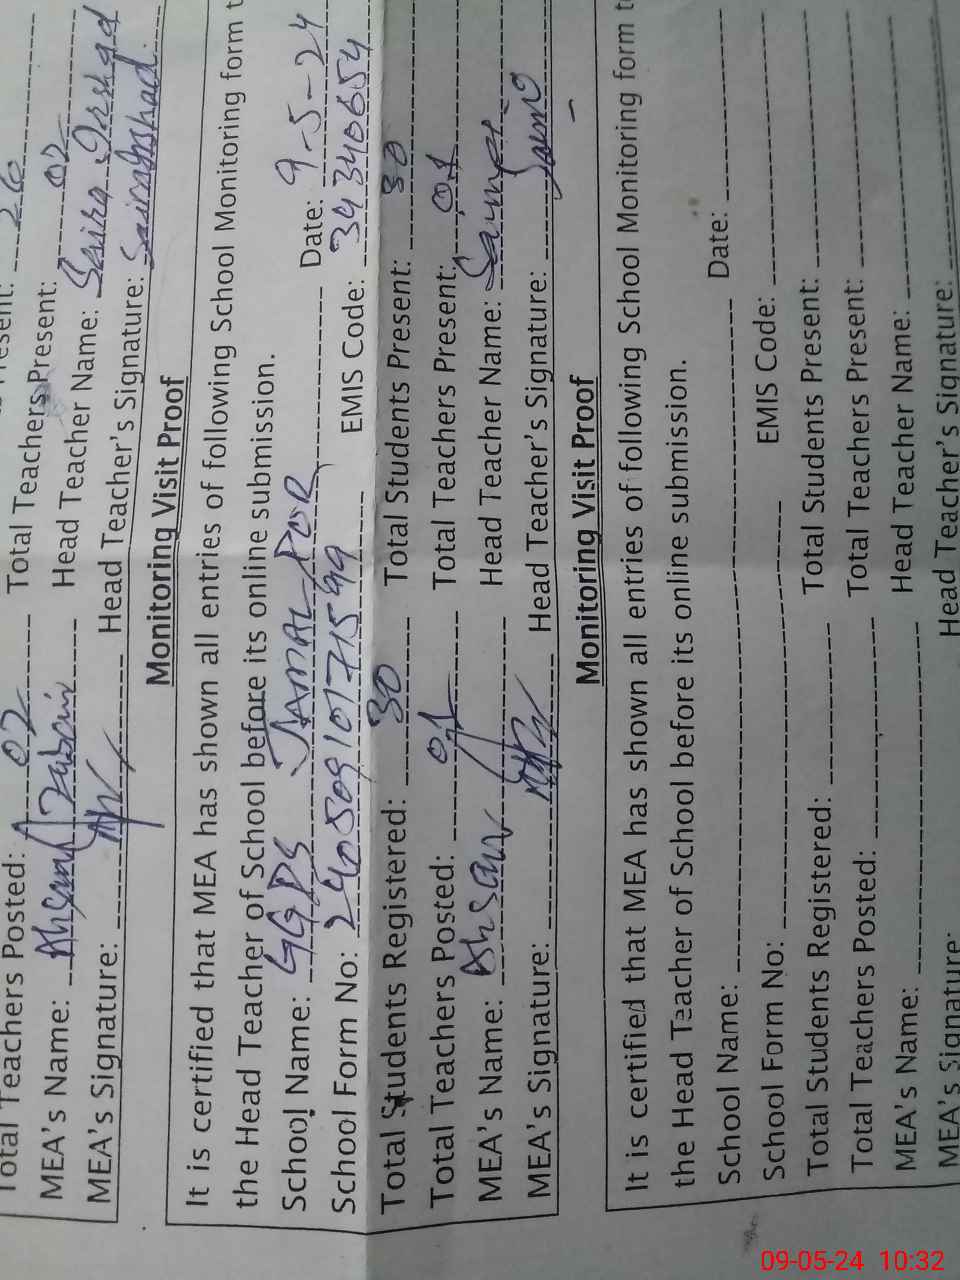 Total Teachers Posted: 02 Total Teachers Present: 02
MEA's Name: Ahsan Head Teacher Name: Saira Irshad
MEA's Signature: Head Teacher's Signature: Saira Irshad
Monitoring Visit Proof
It is certified that MEA has shown all entries of following School Monitoring form
the Head Teacher of School before its online submission.
School Name: GGPS JAMAL PUR Date: 9-5-24
School Form No: EMIS Code: 39340654
Total Students Registered: 30 Total Students Present: 30
Total Teachers Posted: 01 Total Teachers Present: 01
MEA's Name: Ahsan Head Teacher Name:
MEA's Signature: Head Teacher's Signature:
Monitoring Visit Proof
It is certified that MEA has shown all entries of following School Monitoring form
the Head Teacher of School before its online submission.
School Name: Date:
School Form No: EMIS Code:
Total Students Registered: Total Students Present:
Total Teachers Posted: Total Teachers Present:
MEA's Name: Head Teacher Name:
MEA's Signature: Head Teacher's Signature:
09-05-24 10:32